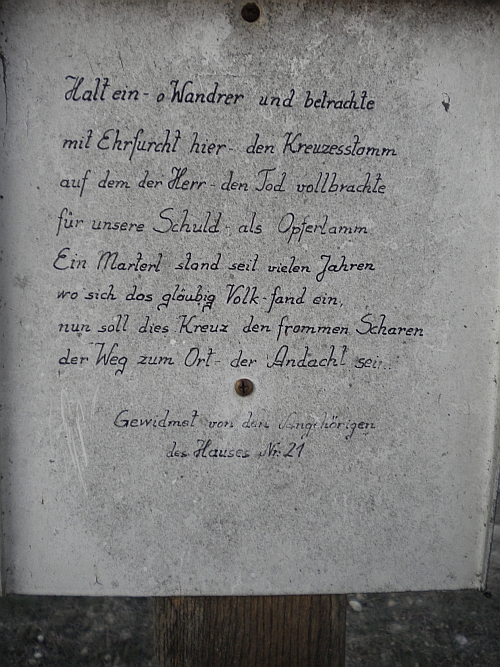 Halt ein - o Wandrer und betrachte
mit Ehrfurcht hier - den Kreuzesstamm
auf dem der Herr - den Tod vollbrachte
für unsere Schuld - als Opferlamm
Ein Marterl stand seit vielen Jahren
wo sich das gläubig Volk - fand ein,
nun soll dies Kreuz den frommen Scharen
der Weg zum Ort - der Andacht sein.
Gewidmet von den Angehörigen
des Hauses Nr. 21